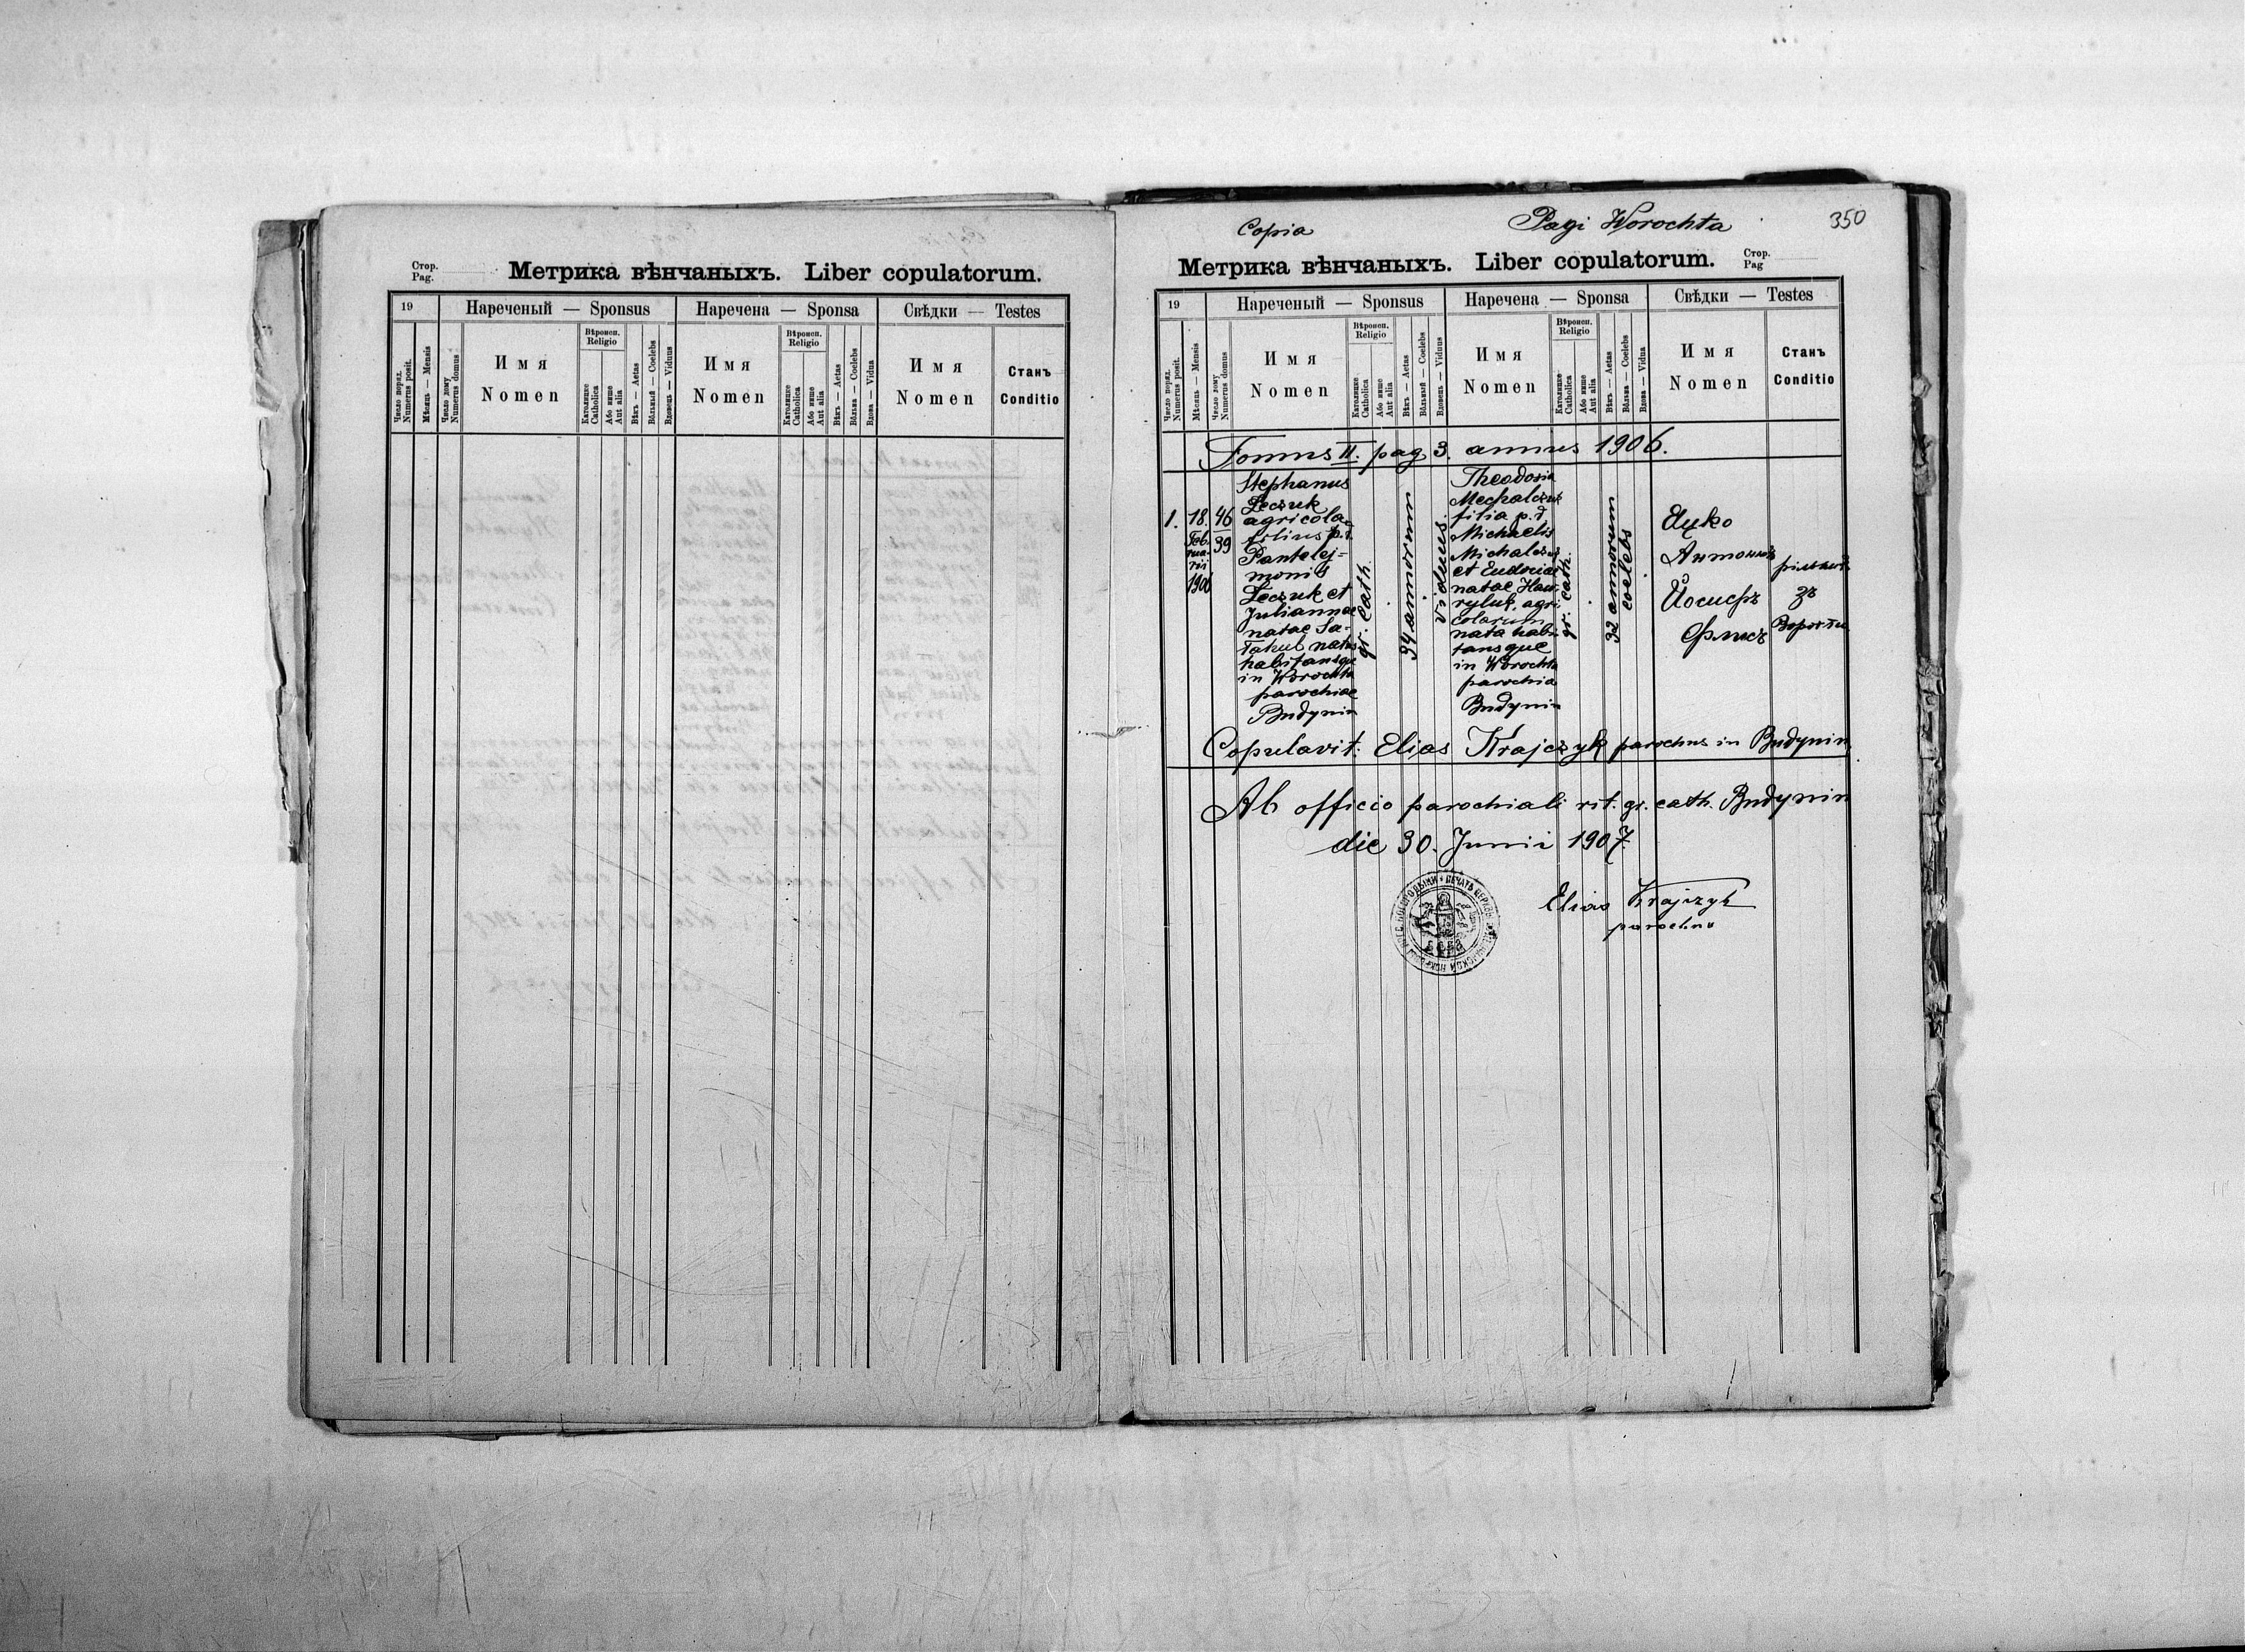 Стор.
Pag.
Метрика вѣнчаныхъ. Liber copulatorum.
19
Нареченый — Sponsus
Наречена — Sponsa
Свѣдки — Testes
Число поряд.
Numerus posit.
Мѣсяць — Mensis
Число дому
Numerus domus
Имя
Nomen
Вѣроисп.
Religio
Католицке
Catholica
Або инше
Aut alia
Вѣкъ — Aetas
Вôльный — Coelebs
Вдовець — Viduus
Имя
Nomen
Вѣроисп.
Religio
Католицке
Catholica
Або инше
Aut alia
Вѣкъ — Aetas
Вôльна — Coelebs
Вдова — Vidua
Имя
Nomen
Станъ
Conditio
Copia
Pagi Worochta
350
Метрика вѣнчаныхъ. Liber copulatorum.
Стор.
Pag
19
Нареченый — Sponsus
Наречена — Sponsa
Свѣдки — Testes
Число поряд.
Numerus posit.
Мѣсяць — Mensis
Число дому
Numerus domus
Имя
Nomen
Вѣроисп.
Religio
Католицке
Catholica
Або инше
Aut alia
Вѣкъ — Aetas
Вôльный — Coelebs
Вдовець — Viduus
Имя
Nomen
Вѣроисп.
Religio
Католицке
Catholica
Або инше
Aut alia
Вѣкъ — Aetas
Вôльна — Coelebs
Вдова — Vidua
Имя
Nomen
Станъ
Conditio
Tomus II. pag 3. annus 1906.
1.
18.
Feb
rua-
rii
1906
46
39
Stephanus
Leczuk
agricola
filius p.d.
Pantelej-
monis
Leczuk et
Juliannae
natae Sa-
habitansque
in Worochta
parochiae
Budynin
gr. cath.
34 annorum
viduus.
Theodosia
Michalczuk
filia p.d
Michaelis
Michalczuk
et Eudociae
natae Haw
ryluk, agri
colarum
nata habi
tansque
in Worochta
parochia
Budynin
gr. cath.
32 annorum
coelebs
Яцко
Антонюкъ
Йосифъ
Флисъ
рôльники
зъ
Ворохти
Copulavit: Elias Krajczyk parochus in Budynin
Ab officio parochiali rit. gr. cath. Budynin
die 30. Junii 1907.
Elias Krajczyk
parochus